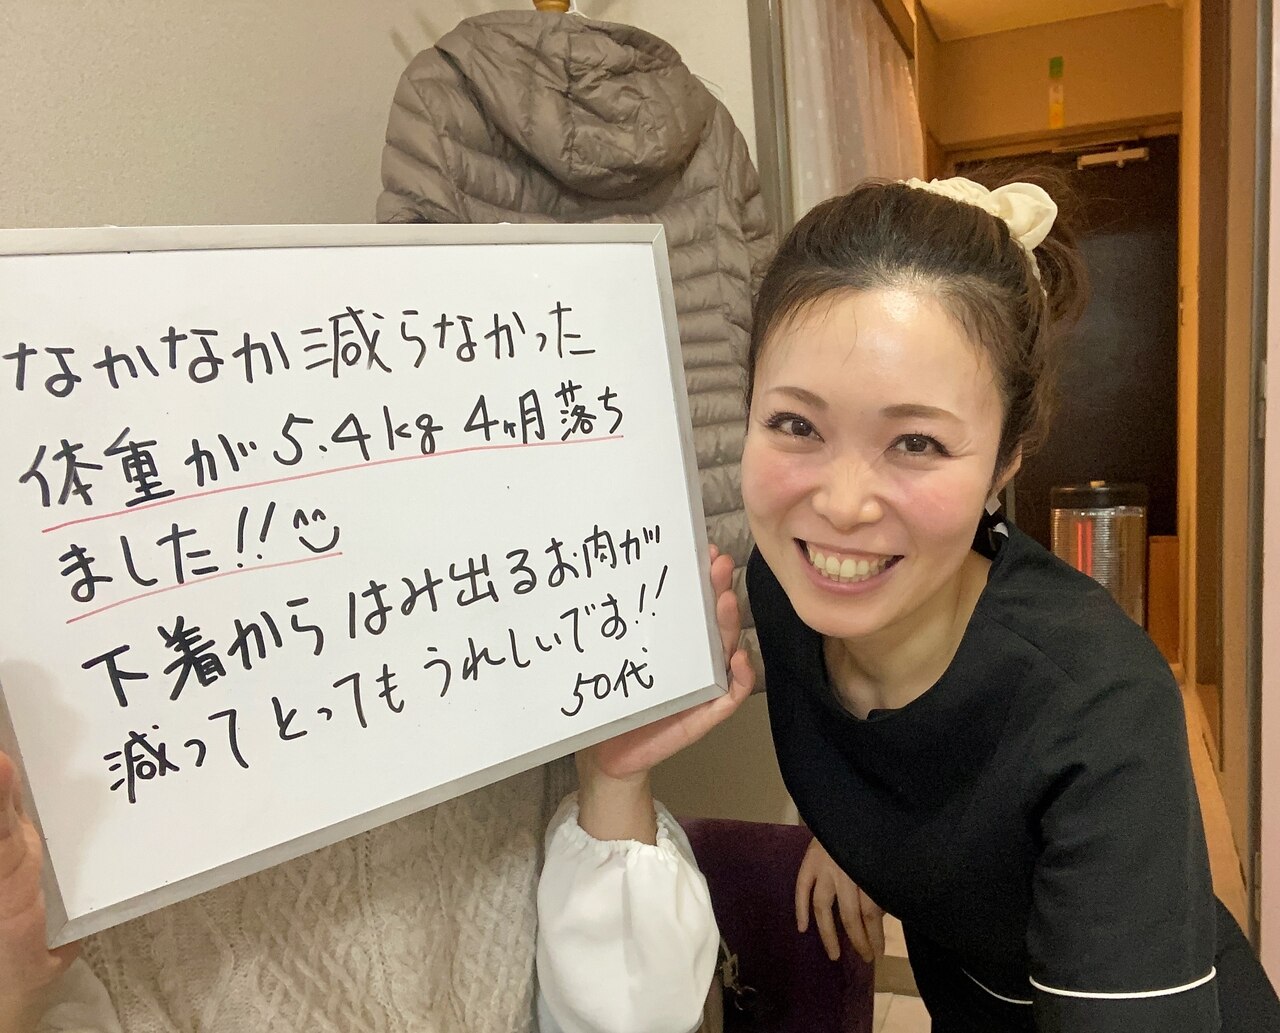 なかなか減らなかった
体重が5.4kg 4ヶ月落ち
ました!!
下着からはみ出るお肉が
減ってとってもうれしいです!!
50代